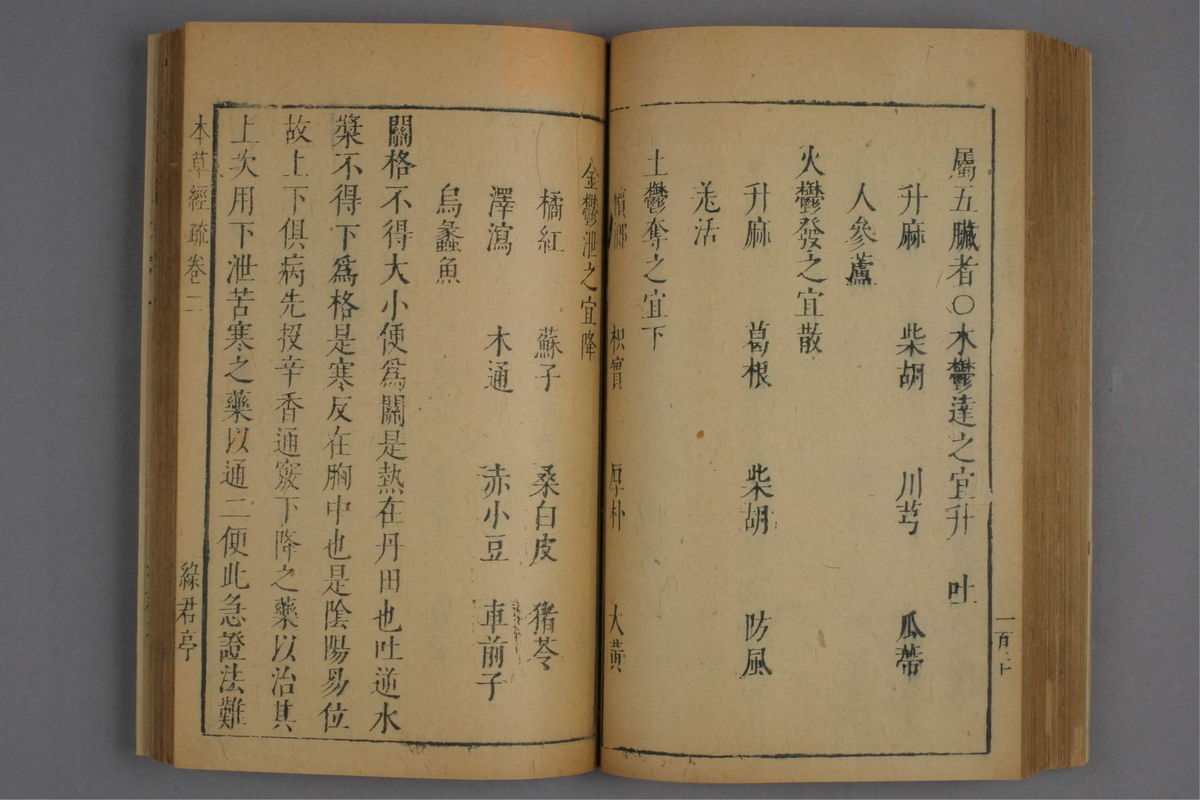 屬五臟者○木鬱達之宜升　吐
升麻　柴胡　川芎　瓜蒂
人參蘆
火鬱發之宜散
升麻　葛根　柴胡　防風
羌活
土鬱奪之宜下
檳榔　枳實　厚朴　大黃
金鬱泄之宜降
橘紅　蘇子　桑白皮　猪苓
澤瀉　木通　赤小豆　車前子
烏蠡魚
關格不得大小便爲關是熱在丹田也吐逆水
漿不得下爲格是寒反在胸中也是陰陽易位
故上下俱病先投辛香通竅下降之藥以治其
上次用下泄苦寒之藥以通二便此急證法難
本草經疏卷二
綠君亭